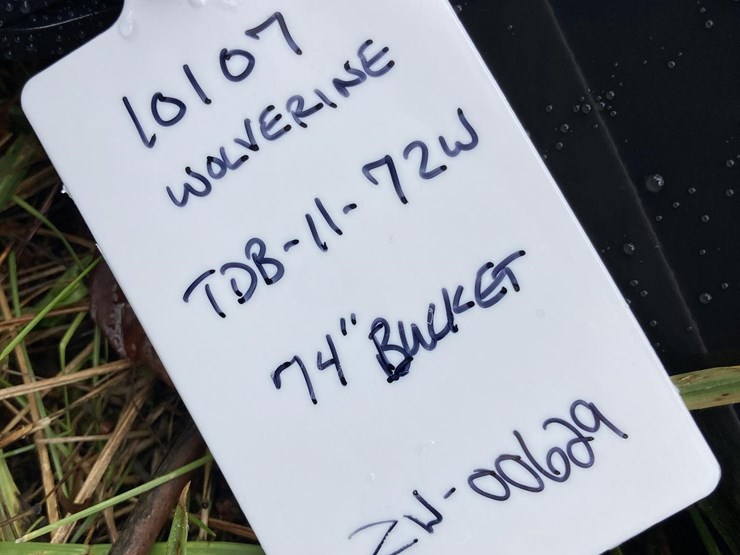 10107
WOLVERINE
TDB-11-72W
74" BUCKET
ZW-00629